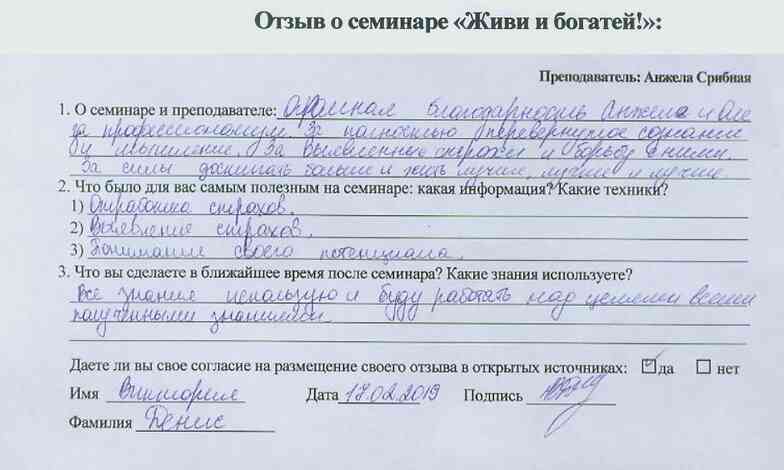 Отзыв о семинаре «Живи и богатей!»:
Преподаватель: Анжела Срибная
1. О семинаре и преподавателе: Огромная благодарность Анжела и Оле
за профессионализм. За полностью перевернутое сознание
и мышление. За выявленные страхи и борьбу с ними.
За силы достигать больше и жить лучше, лучше и лучше
2. Что было для вас самым полезным на семинаре: какая информация? Какие техники?
1) Отработка страхов.
2) Выявление страхов.
3) Понимание своего потенциала.
3. Что вы сделаете в ближайшее время после семинара? Какие знания используете?
Все знания использую и буду работать над целями всеми
полученными знаниями
Даете ли вы свое согласие на размещение своего отзыва в открытых источниках: да нет
Имя Дата 17.02.2019 Подпись
Фамилия Денис